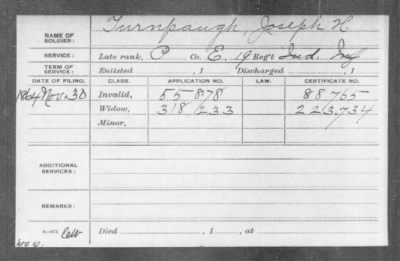 NAME OF SOLDIER: Turnpaugh, Joseph H.
SERVICE: Late rank, P Co. E, 19 Reg't Ind. Inf
TERM OF SERVICE: Enlisted , 1 Discharged , 1
DATE OF FILING. CLASS. APPLICATION NO. LAW. CERTIFICATE NO.
1864 Nov. 30 Invalid, 55878 88765
Widow, 318/233 223,734
Minor,
ADDITIONAL SERVICES:
REMARKS:
Died , 1 , at